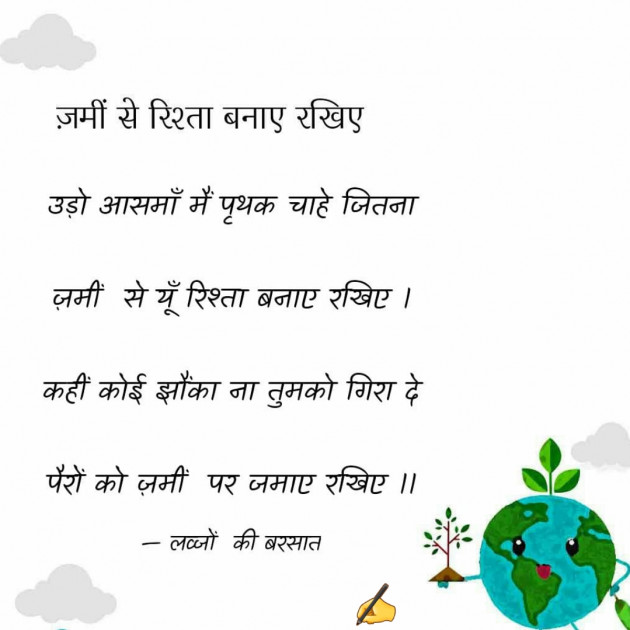 ज़मीं से रिश्ता बनाए रखिए
उड़ो आसमाँ मैं पृथक चाहे जितना
ज़मीं से यूँ रिश्ता बनाए रखिए ।
कहीं कोई झौंका ना तुमको गिरा दे
पैरों को ज़मीं पर जमाए रखिए ।।
– लव्जों की बरसात